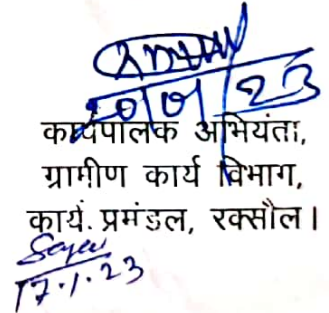 20/01/23
कार्यपालक अभियंता,
ग्रामीण कार्य विभाग,
कार्य प्रमंडल, रक्सौल।
17.1.23